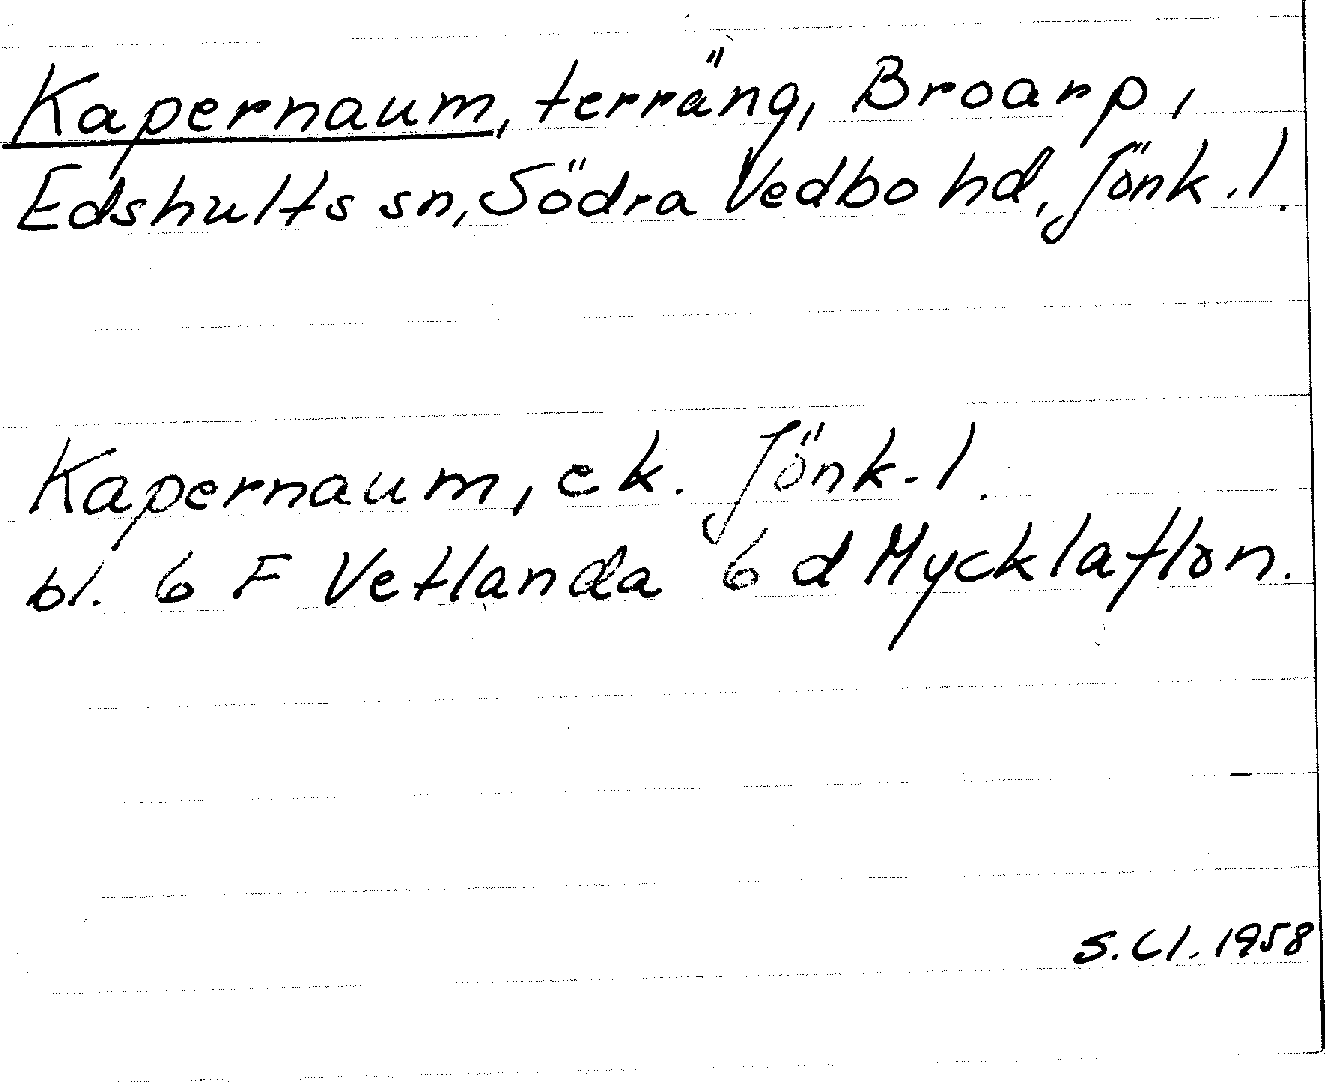 Kapernaum, terräng, Broarp,
Edshults sn, Södra Vedbo hd, Jönk.l.
Kapernaum, ek. Jönk.l.
bl. 6 F Vetlanda 6 d Mycklaflon.
S.Cl. 1958